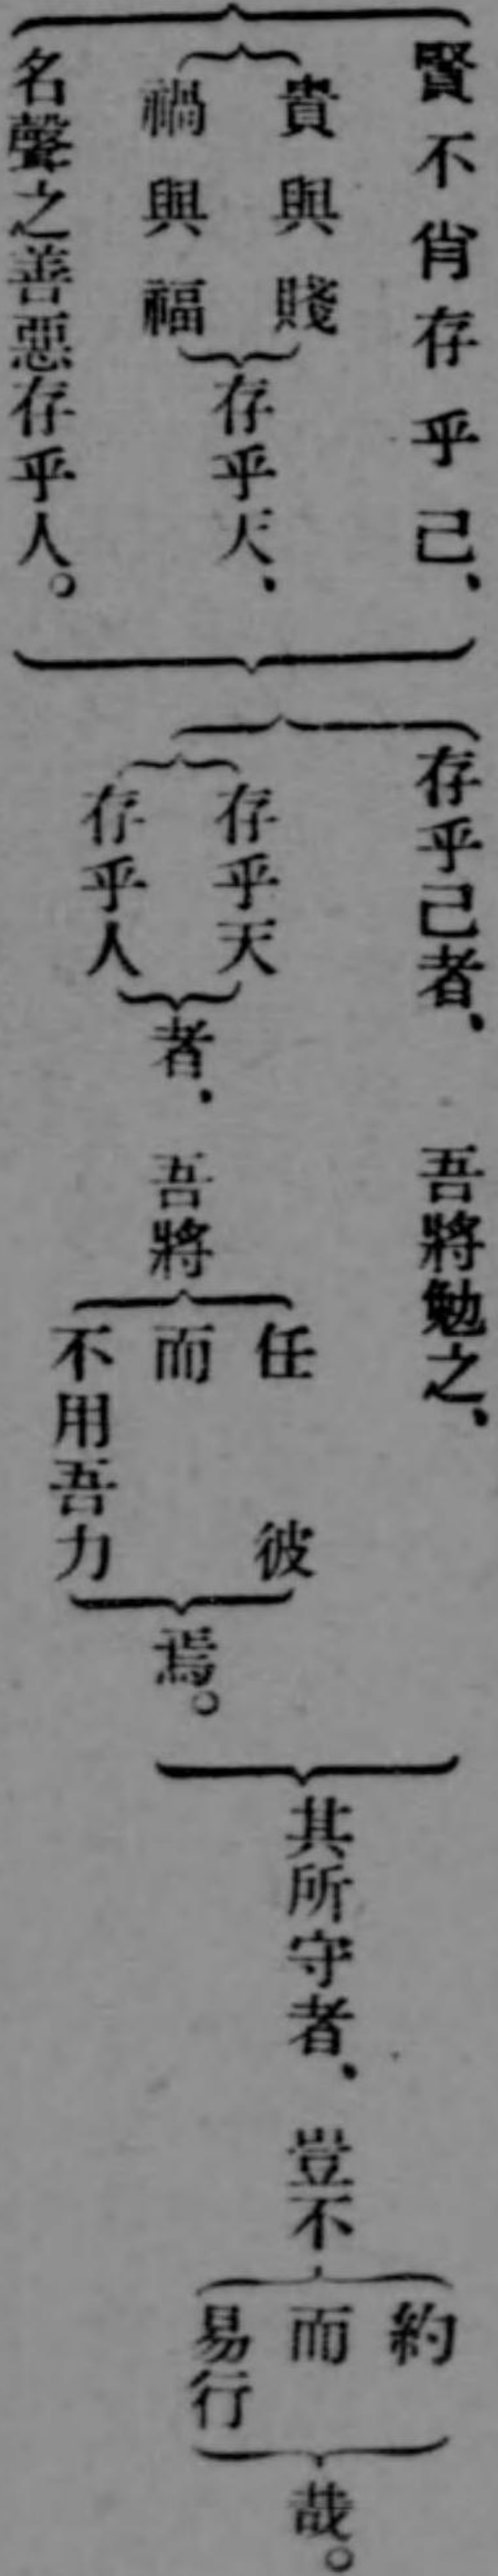 賢不肖存乎己、
貴與賤
禍與福
存乎天、
名聲之善惡存乎人。
存乎己者、吾將勉之、
存乎天
存乎人
者、吾將
任彼
而
不用吾力
焉。
其所守者、豈不
約
而
易行
哉。